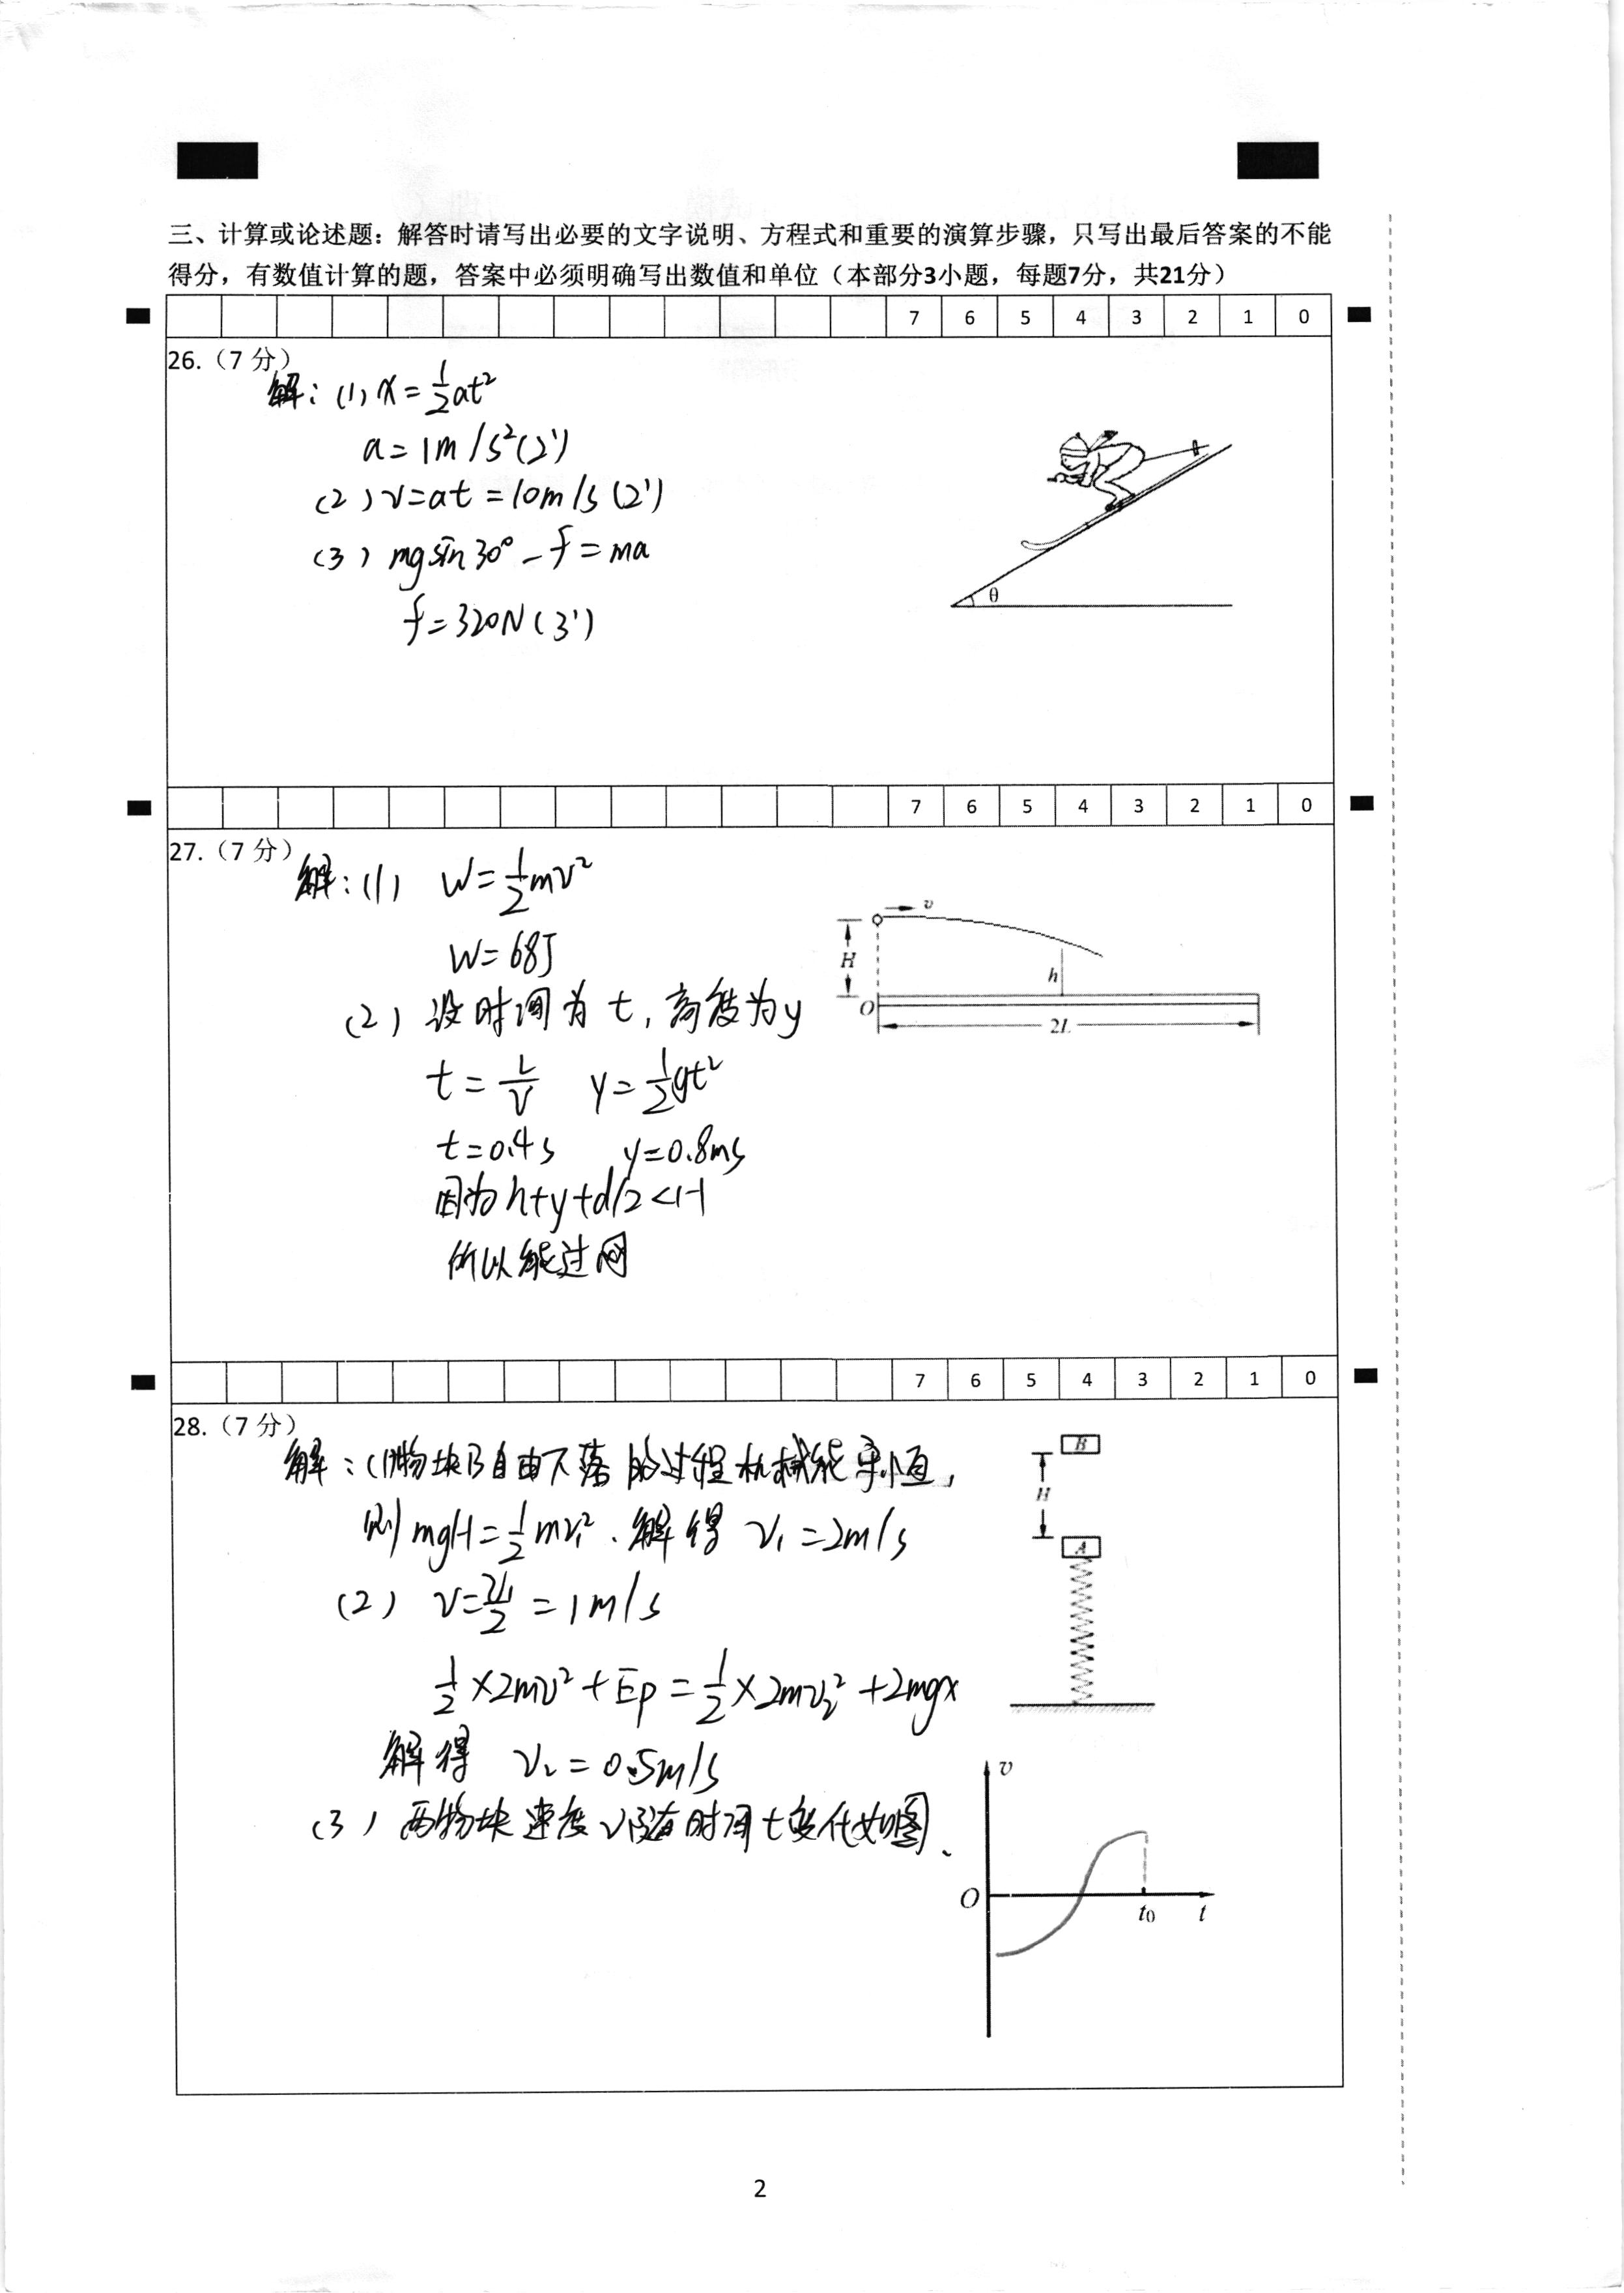 三、计算或论述题：解答时请写出必要的文字说明、方程式和重要的演算步骤，只写出最后答案的不能
得分，有数值计算的题，答案中必须明确写出数值和单位（本部分3小题，每题7分，共21分）
7 6 5 4 3 2 1 0
26.（7 分）
解：(1) x=½at²
a=1m/s²(2')
(2) v=at=10m/s(2')
(3) mgsin30°-f=ma
f=320N(3')
θ
7 6 5 4 3 2 1 0
27.（7 分）
解：(1) W=½mv²
W=68J
(2) 设时间为t，高度为y
t=L/v y=½gt²
t=0.4s y=0.8ms
因为h+y+d/2<H
所以能过网
v
H
h
O
2L
7 6 5 4 3 2 1 0
28.（7 分）
解：(1)物块B自由下落的过程机械能守恒，
则mgH=½mv₁². 解得 v₁=2m/s
(2) v=v₁/2=1m/s
½×2mv²+Ep=½×2mv₂²+2mgx
解得 v₂=0.5m/s
(3) 两物块速度v随时间t变化如图、
B
H
A
v
O
t₀ t
2